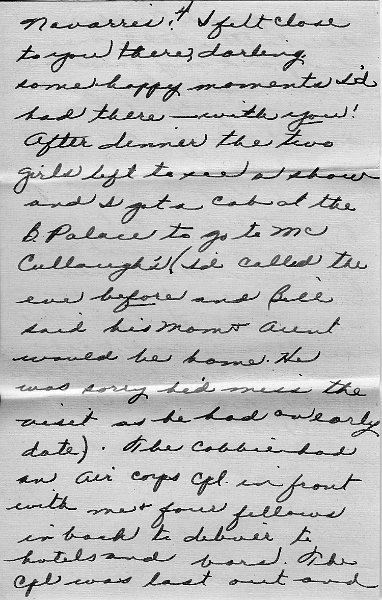 Navarre's! 4 I felt close
to you there, darling,
some happy moments I'd
had there — with you!
After dinner the two
girls left to see a show
and I got a cab at the
B. Palace to go to Mc
Cullough's (I'd called the
eve before and Bill
said his Mom & Aunt
would be home. He
was sorry he'd miss the
visit as he had an early
date). The cabbie had
an air corps Cpl. in front
with me & four fellows
in back to deliver to
hotels and bars. The
Cpl was last out and